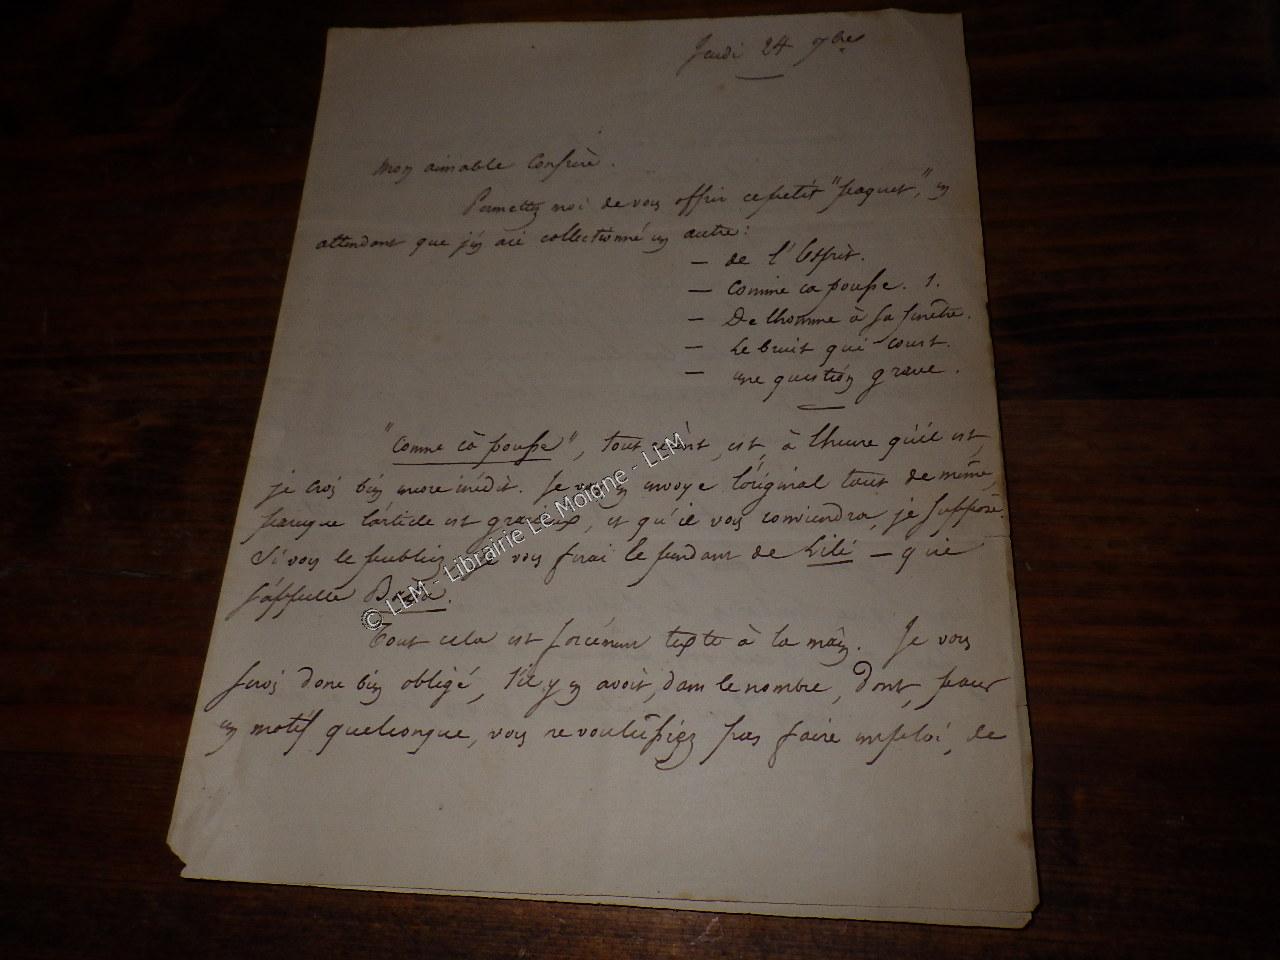 Jeudi 24 7bre
Mon aimable Confrère.
Permettez moi de vous offrir ce petit "paquet", en
attendant que j'en aie collectionné un autre:
— de l'Esprit.
— Comme ca pousse. 1.
— De l'homme à sa fenêtre.
— Le bruit qui court.
— une question grave.
"Comme cà pousse", tout est, à l'heure qu'il est,
je crois bien encore inédit. Je vous en envoye l'original tout de même,
parceque l'article est gracieux, et qu'il vous conviendra, je suppose.
Si vous le publiez, je vous ferai le pendant de Lili — qui
s'appelle
Tout cela est forcément texte à la main. Je vous
serois donc bien obligé, s'il y en avoit, dans le nombre, dont, pour
un motif quelconque, vous ne voulussiez pas faire emploi, de
© LLM - Librairie Le Moigne - LLM